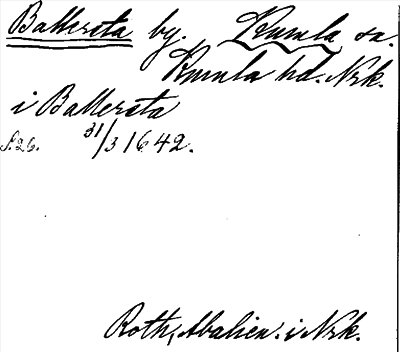 Ballersta by. Kumla sn.
Kumla hd. Nrk.
i Ballersta
s. 26. 31/3 1642.
Roth, Abalien. i Nrk.